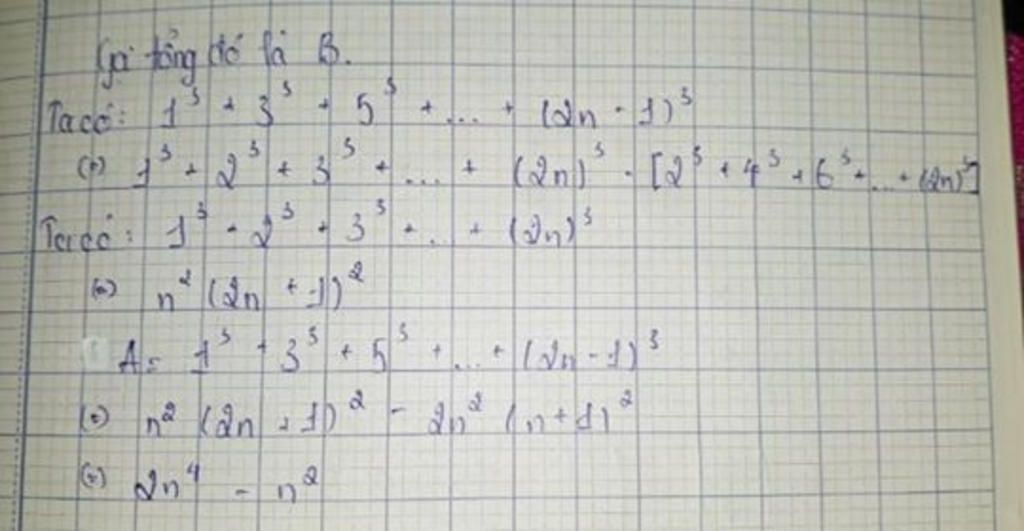 Gọi tổng đó là B.
Ta có: 1³ + 3³ + 5³ + ... + (2n - 1)³
(=) 1³ + 2³ + 3³ + ... + (2n)³ - [2³ + 4³ + 6³ + ... + (2n)³]
Ta có: 1³ + 2³ + 3³ + ... + (2n)³
(=) n² (2n + 1)²
A = 1³ + 3³ + 5³ + ... + (2n - 1)³
(=) n² (2n + 1)² - 2n² (n + 1)²
(=) 2n⁴ - n²